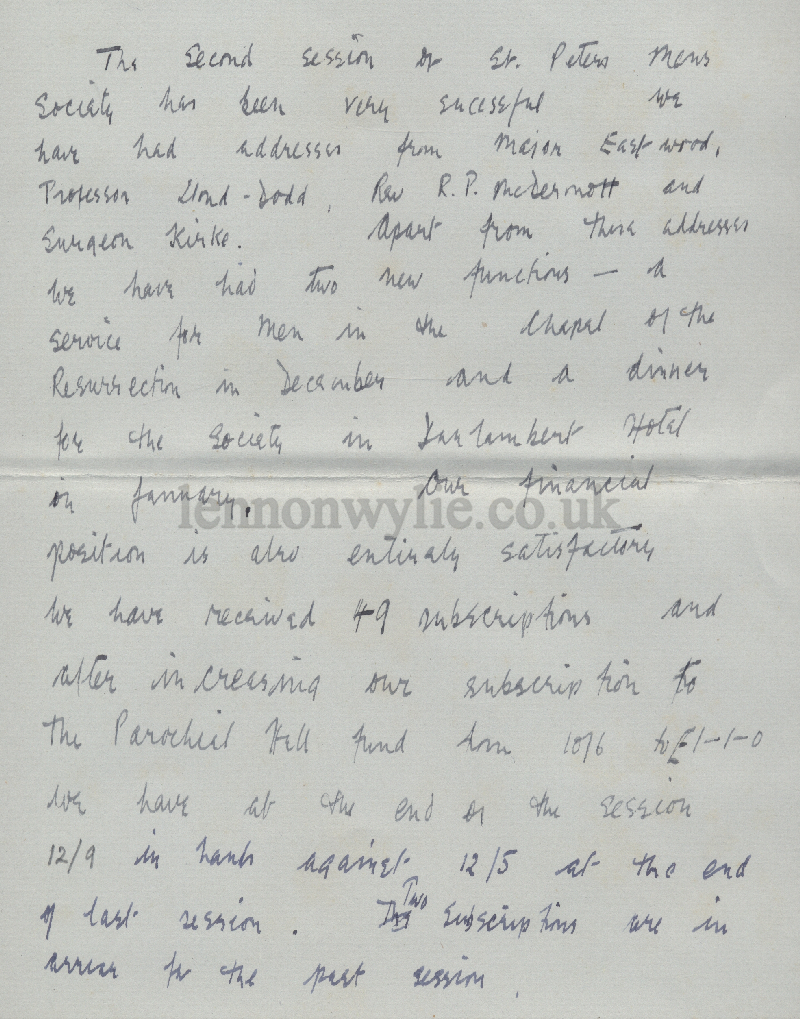 The Second session of St. Peters Mens
Society has been very sucessful we
have had addresses from Major Eastwood,
Professor Lloyd-Dodd, Rev R.P. McDermott and
Surgeon Kirke. Apart from these addresses
we have had two new functions — a
service for men in the Chapel of the
Resurrection in December and a dinner
for the Society in Hotel
in January. Our financial
lennonwylie.co.uk
position is also entirely satisfactory
We have received 49 subscriptions and
after increasing our subscription to
the Parochial Hall fund from 10/6 to £1-1-0
We have at the end of the session
12/9 in hand against 12/5 at the end
of last session. Two Subscriptions are in
arrear for the past session